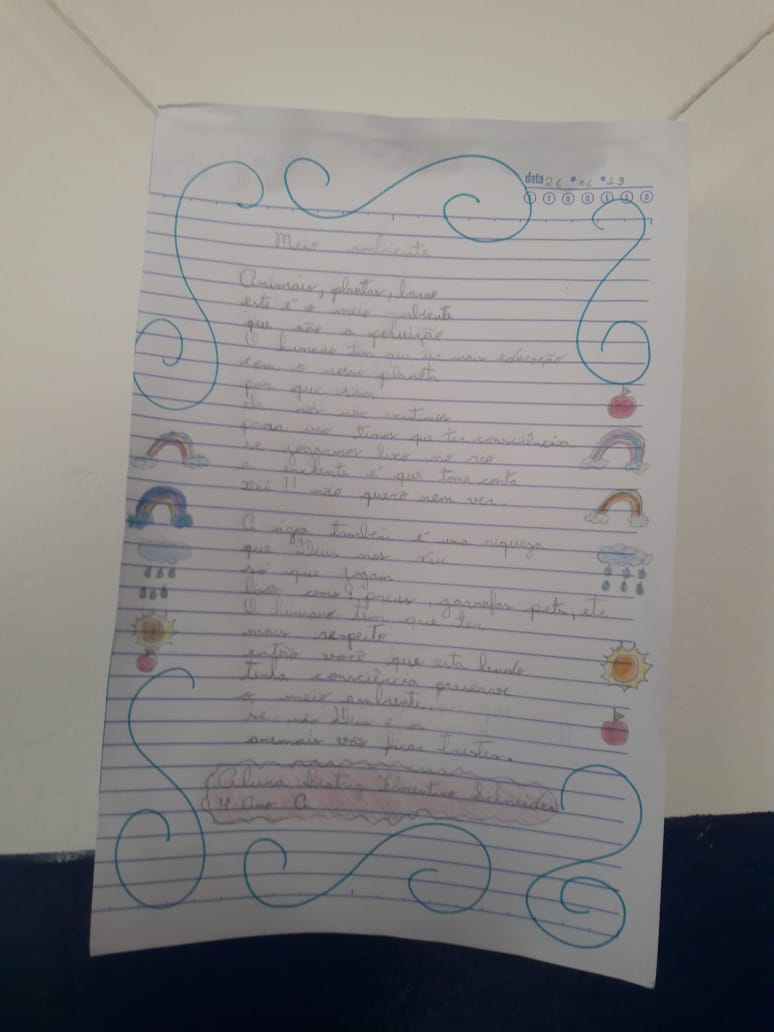 data 26 06 19
D S T Q Q S S
Meio ambiente
Animais, plantas,
este é o meio ambiente
que não a poluição
O humano tem que ter mais educação
com o nosso planeta
por que sem
ele nós não
para isso temos que ter consciência
se jogarmos lixo no rio
a enchente é que toma conta
xii!! não quero nem ver.
A água também é uma riqueza
que Deus nos deu
só que jogam
lixo como: pneus, garrafas pets, etc
O humano tem que ter
mais respeito
então você que esta lendo
tenha consciência preserve
o meio ambiente,
se não Deus e os
animais vão ficar tristes.
Aluna Beatriz Florentino Schneider
4 Ano A